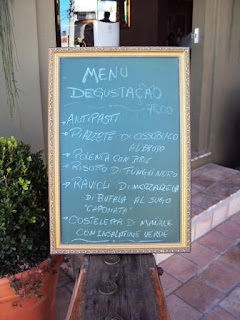 MENU
DEGUSTAÇÃO
78,00
- ANTIPASTI
- PIAZZETE DI OSSOBUCO
AL BRODO
- POLENTA CON
- RISOTTO DI FUNGHI MISTO
- RAVIOLI DI MOZZARELLA
DI BUFALA AL SUGO
"CAPONATA"
- COSTELETTA DI MAIALE
COM INSALATINE VERDE